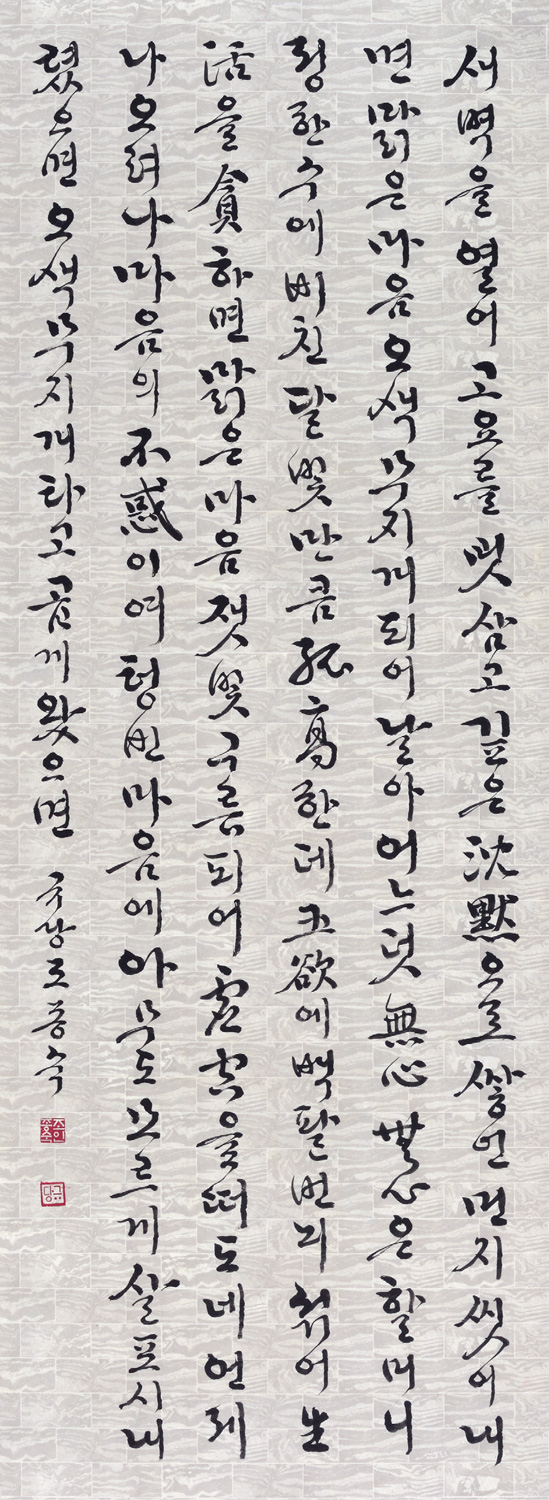 새벽을 열어 고요를 벗삼고 깊은 沈默으로 쌓인 먼지 씻어내
면 맑은 마음 오색무지개 되어 날아 어느덧 無心 無心은 할머니
정한수에 비친 달빛만큼 孤高한데 五欲에 백팔번뇌 섞어 生
活을 貪하면 맑은 마음 잿빛 구름되어 虛空을 떠도네 언제
나 오려나 마음의 不惑이여 텅빈 마음에 아무도 모르게 살포시 내
렸으면 오색무지개 타고 곱게 왔으면 규당 조종숙